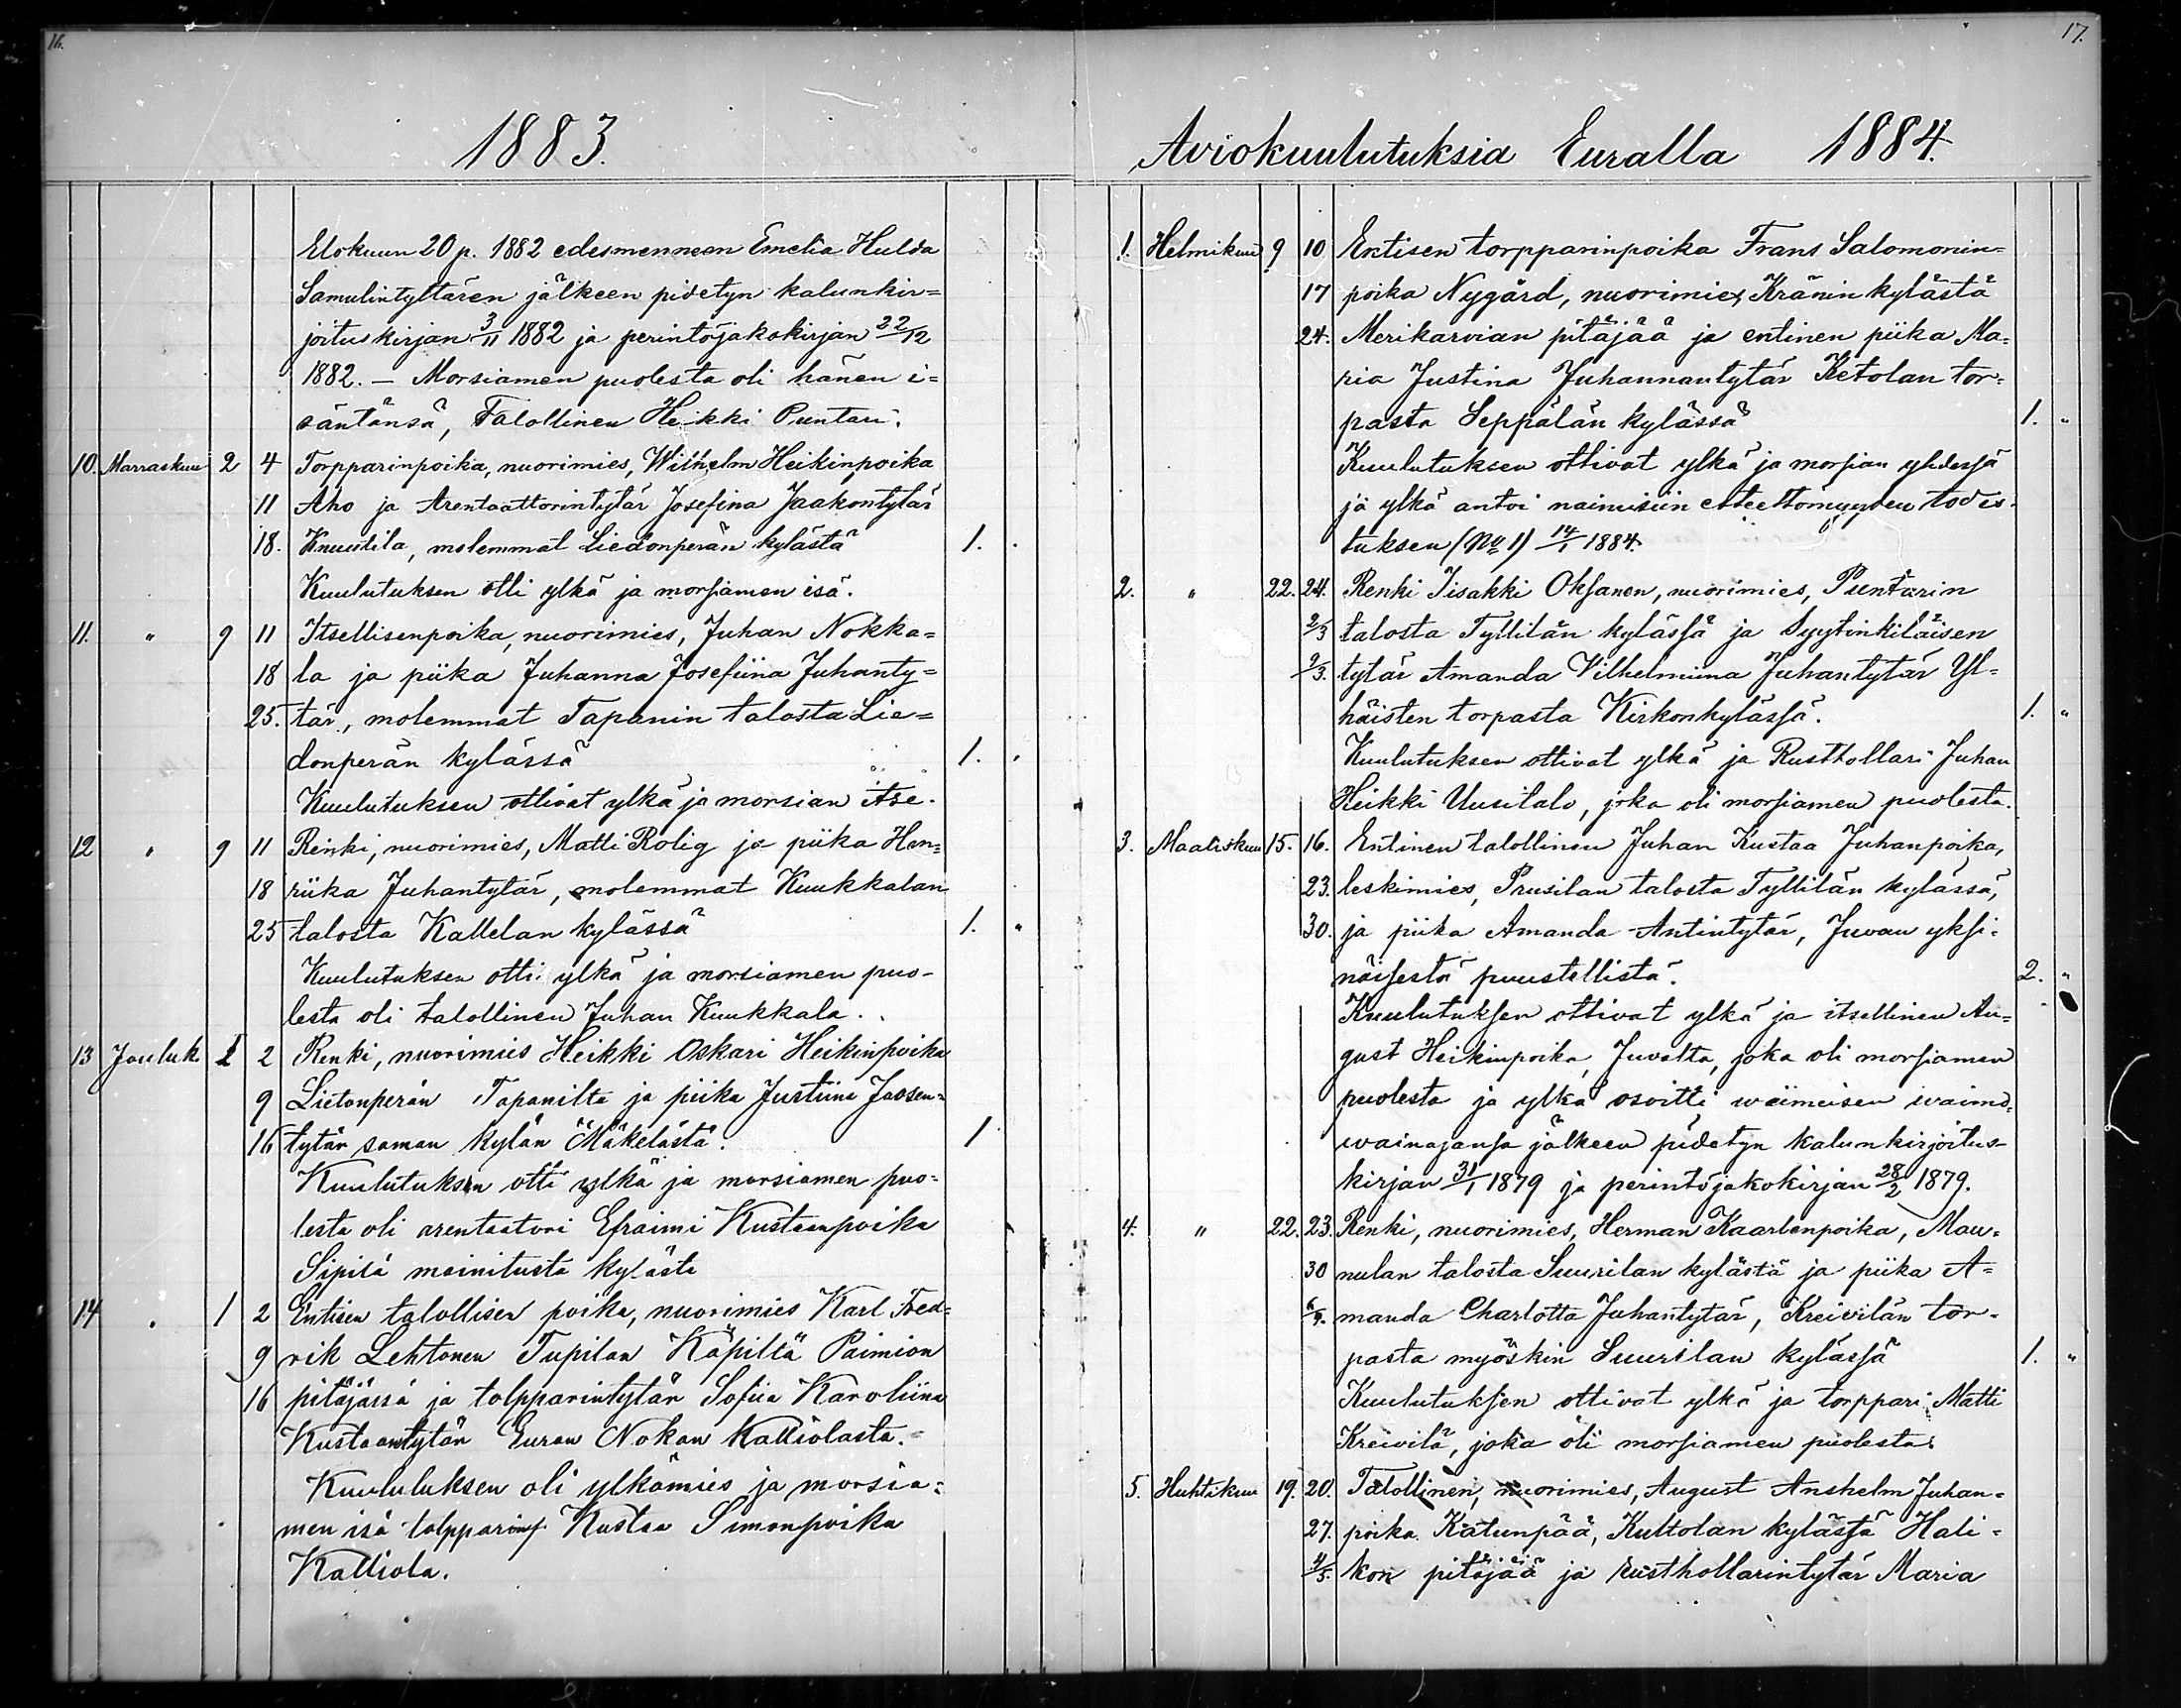 16.
1883.
Elokuun 20 p. 1882 edesmenneen Emelia Hulda
Samulintyttären jälkeen pidetyn kalunkir=
joituskirjan 3/11 1882 ja perintöjakokirjan 22/12
1882. — Morsiamen puolesta oli hänen i=
säntänsä, Talollinen Heikki Puntari.
10. Marraskuu 2 4 Torpparinpoika, nuorimies, Wilhelm Heikinpoika
11 Aho ja Arentaattorintytär Josefina Jaakontytär
18. Knuutila, molemmat Liedonperän kylästä 1. .
Kuulutuksen otti ylkä ja morsiamen isä.
11. " 9 11 Itsellisenpoika, nuorimies, Juhan Nokka=
18 la ja piika Juhanna Josefiina Juhanty=
25. tär, molemmat Tapanin talosta Lie=
donperän kylässä 1. .
Kuulutuksen ottivat ylkä ja morsian itse.
12 " 9 11 Renki, nuorimies, Matti Rolig ja piika Hen=
18 riika Juhantytär, molemmat Kuukkalan
25 talosta Kallelan kylässä 1. "
Kuulutuksen otti ylkä ja morsiamen puo-
lesta oli talollinen Juhan Kuukkala.
13 Jouluk. 1 2 Renki, nuorimies Heikki Oskari Heikinpoika
9 Lietonperän Tapanilta ja piika Justiina Joosen=
16 tytär saman kylän Mäkelästä. 1
Kuulutuksen otti ylkä ja morsiamen puo=
lesta oli arentaatori Efraimi Kustaanpoika
Sipilä mainitusta kylästä
14 " 1 2 Entisen talollisen poika, nuorimies Karl Fred=
9 rik Lehtonen Tupilan Käpiltä Paimion
16 pitäjässä ja tolpparintytär Sofiia Karoliina
Kustaantytär Euran Nokan Kalliolasta.
Kuululuksen oli ylkämies ja morsia=
men isä tolppari Kustaa Simonpoika
Kalliola.
17.
Aviokuulutuksia Euralla 1884.
1. Helmikuu 9 10 Entisen torpparinpoika Frans Salomonin=
17 poika Nygård, nuorimies, Kränin kylästä
24. Merikarvian pitäjää ja entinen piika Ma=
ria Justina Juhannantytär Ketolan tor=
pasta Seppälän kylässä 1. "
Kuulutuksen ottivat ylkä ja morsian yhdessä
ja ylkä antoi naimisiin esteettömyyden todis=
tuksen (No 1) 14/1 1884.
2. " 22. 24. Renki Iisakki Oksanen, nuorimies, Puntarin
2/3 talosta Tyllilän kylässä ja Syytinkiläisen
9/3. tytär Amanda Vilhelmiina Juhantytär Yl=
häisten torpasta Kirkonkylässä. 1. "
Kuulutuksen ottivat ylkä ja Rusthollari Juhan
Heikki Uusitalo, joka oli morsiamen puolesta.
3. Maaliskuu 15. 16. Entinen talollinen Juhan Kustaa Juhanpoika,
23. leskimies, Prusilan talosta Tyllilän kylässä,
30. ja piika Amanda Antintytär, Juvan yksi=
näisestä puustellista. 2. "
Kuulutuksen ottivat ylkä ja itsellinen Au=
gust Heikinpoika, Juvalta, joka oli morsiamen
puolesta ja ylkä osoitti wiimeisen waimo=
wainajansa jälkeen pidetyn kalunkirjoitus-
kirjan 31/1 1879 ja perintöjakokirjan 28/2 1879.
4. " 22. 23. Renki, nuorimies, Herman Kaarlenpoika, Mau=
30 nulan talosta Suurilan kylästä ja piika A=
6/4. manda Charlotta Juhantytär, Kreivilän tor=
pasta myöskin Suurilan kylässä 1. "
Kuulutuksen ottivat ylkä ja torppari Matti
Kreivilä, joka oli morsiamen puolesta
5. Huhtikuu 19. 20. Talollinen, nuorimies, August Anshelm Juhan=
27. poika Katunpää, Kuttolan kylästä Hali=
4/5. kon pitäjää ja rusthollarintytär Maria